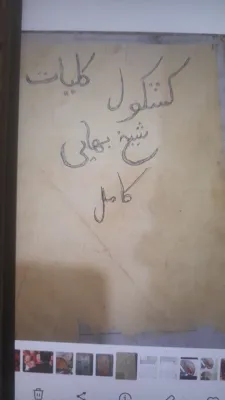 کلیات
کشکول
شیخ بهایی
کامل